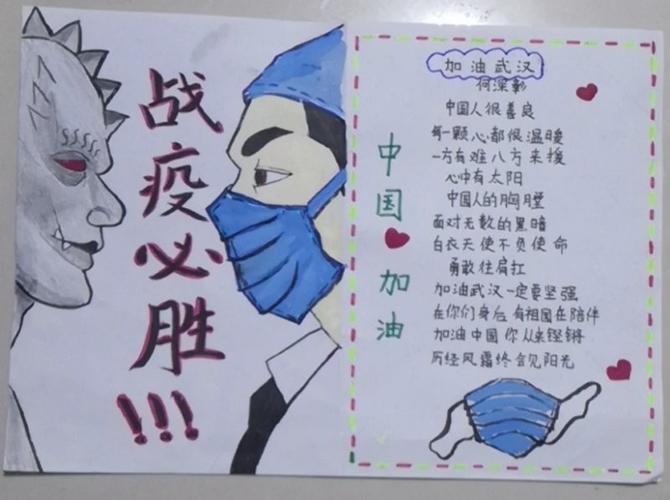 战疫必胜!!!
中国加油
加油武汉
何深彰
中国人很善良
每一颗心都很温暖
一方有难八方来援
心中有太阳
中国人的胸膛
面对无数的黑暗
白衣天使不负使命
勇敢往肩扛
加油武汉一定要坚强
在你们身后有祖国在陪伴
加油中国你从来铿锵
历经风霜终会见阳光